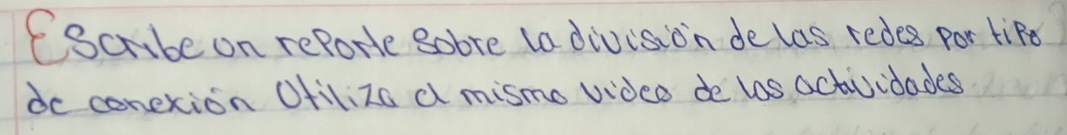 Escribe un reporte sobre la división de las redes por tipo
de conexión Utiliza el mismo video de las actividades